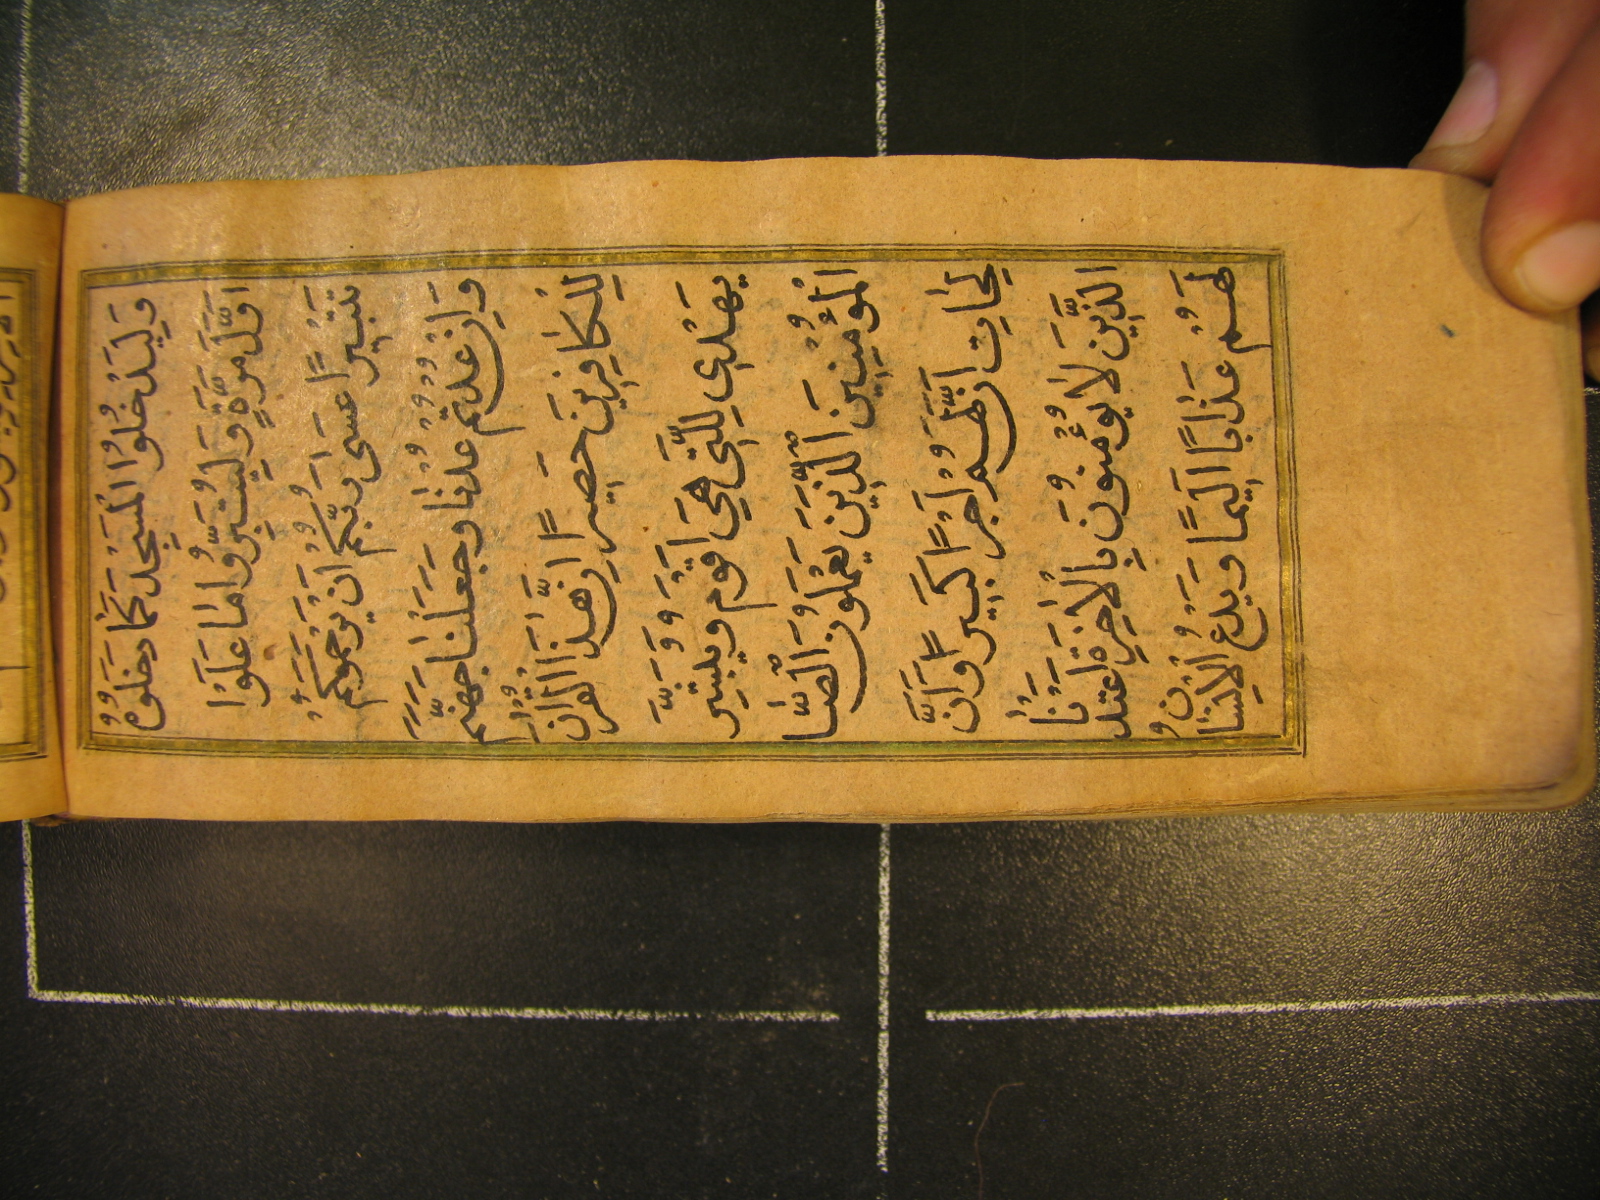 وَلِيَدْخُلُوا الْمَسْجِدَ كَمَا دَخَلُوهُ
اَوَّلَ مَرَّةٍ وَلِيُتَبِّرُوا مَا عَلَوْا
تَتْبِيرًا عَسٰى رَبُّكُمْ اَنْ يَرْحَمَكُمْ
وَاِنْ عُدْتُمْ عُدْنَا وَجَعَلْنَا جَهَنَّمَ
لِلْكَافِرِينَ حَصِيرًا اِنَّ هٰذَا الْقُرْاٰنَ
يَهْدِي لِلَّتِي هِيَ اَقْوَمُ وَيُبَشِّرُ
الْمُؤْمِنِينَ الَّذِينَ يَعْمَلُونَ الصَّا
لِحَاتِ اَنَّ لَهُمْ اَجْرًا كَبِيرًا وَاَنَّ
الَّذِينَ لَا يُؤْمِنُونَ بِالْاٰخِرَةِ اَعْتَدْنَا
لَهُمْ عَذَابًا اَلِيمًا وَيَدْعُ الْاِنْسَانُ